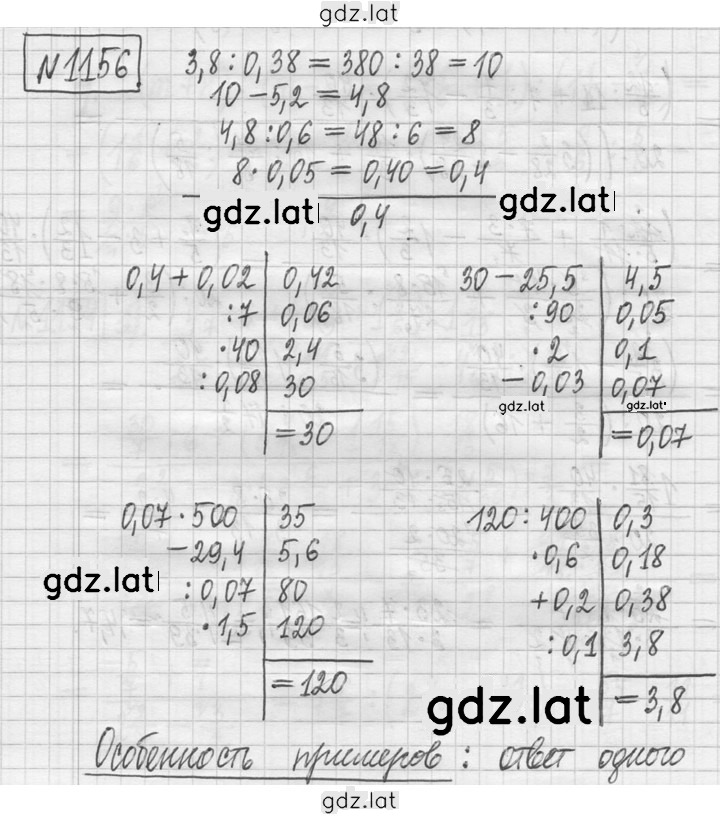 gdz.lat
№1156
3,8 : 0,38 = 380 : 38 = 10
10 – 5,2 = 4,8
4,8 : 0,6 = 48 : 6 = 8
8 · 0,05 = 0,40 = 0,4
gdz.lat
gdz.lat
0,4
0,4 + 0,02 | 0,42
: 7 | 0,06
· 40 | 2,4
: 0,08 | 30
= 30
30 – 25,5 | 4,5
: 90 | 0,05
· 2 | 0,1
– 0,03 | 0,07
gdz.lat
gdz.lat
= 0,07
0,07 · 500 | 35
– 29,4 | 5,6
: 0,07 | 80
· 1,5 | 120
= 120
gdz.lat
120 : 400 | 0,3
· 0,6 | 0,18
+ 0,2 | 0,38
: 0,1 | 3,8
= 3,8
gdz.lat
Особенность примеров : ответ одного
gdz.lat